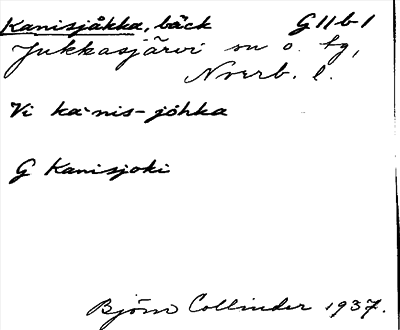 Kanisjåkka, bäck G11b1
Jukkasjärvi sn o. tg,
Norrb. l.
Vi ka·nis-jóhka
G Kanisjoki
Björn Collinder 1937.